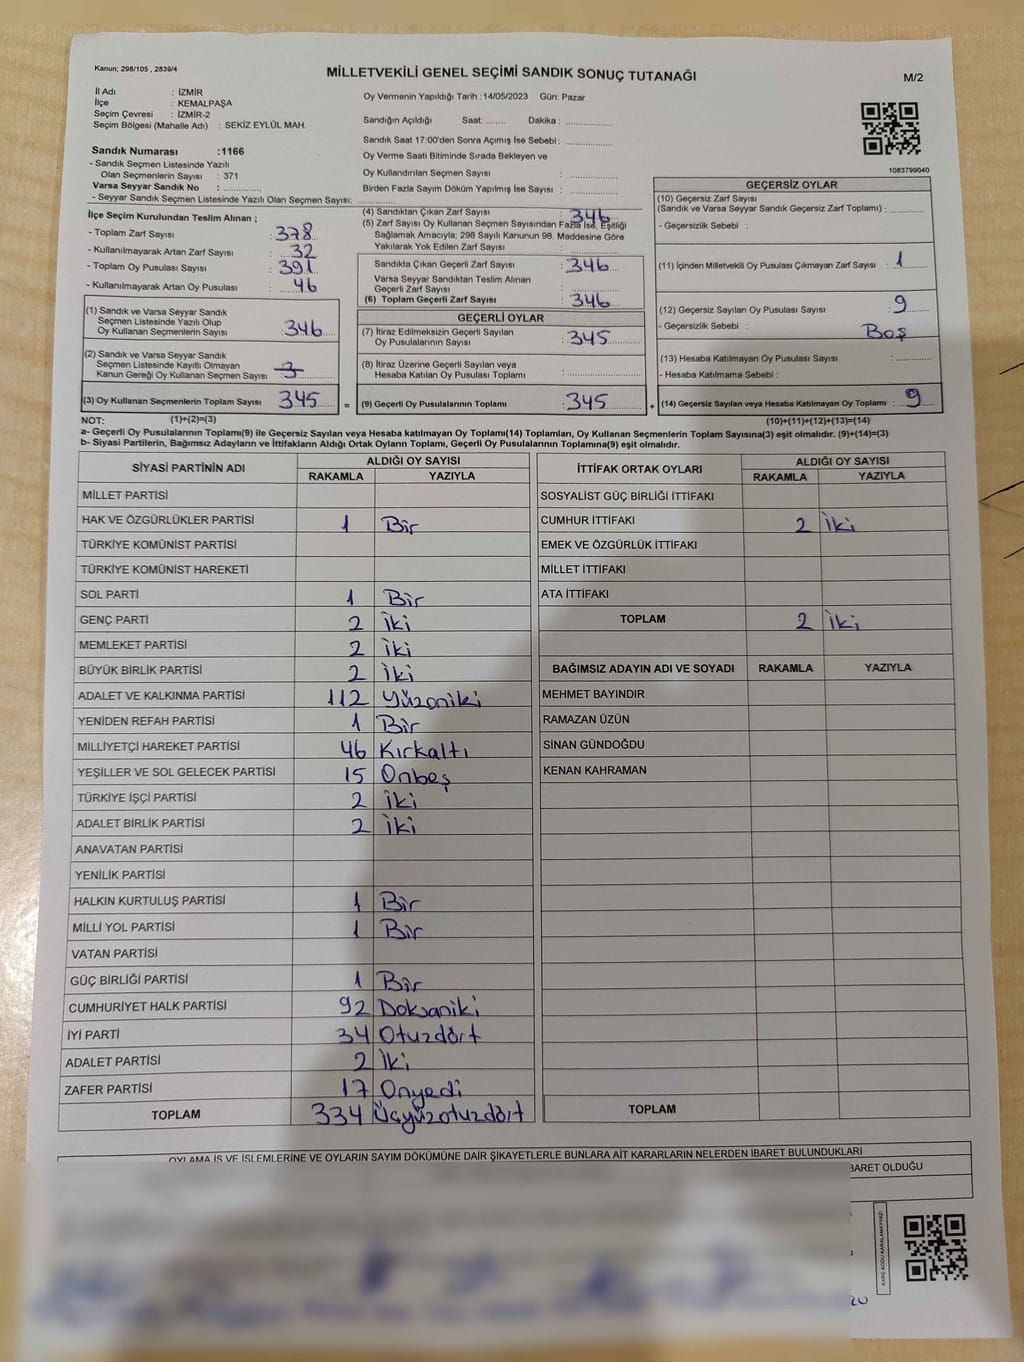 Kanun; 298/105 , 2839/4
MİLLETVEKİLİ GENEL SEÇİMİ SANDIK SONUÇ TUTANAĞI
M/2
İl Adı : İZMİR
İlçe : KEMALPAŞA
Seçim Çevresi : İZMİR-2
Seçim Bölgesi (Mahalle Adı) : SEKİZ EYLÜL MAH.
Sandık Numarası :1166
- Sandık Seçmen Listesinde Yazılı
Olan Seçmenlerin Sayısı : 371
Varsa Seyyar Sandık No :
- Seyyar Sandık Seçmen Listesinde Yazılı Olan Seçmen Sayısı:
Oy Vermenin Yapıldığı Tarih :14/05/2023 Gün: Pazar
Sandığın Açıldığı Saat: Dakika :
Sandık Saat 17:00'den Sonra Açımış İse Sebebi :
Oy Verme Saati Bitiminde Sırada Bekleyen ve
Oy Kullandırılan Seçmen Sayısı :
Birden Fazla Sayım Döküm Yapılmış İse Sayısı :
1083799040
İlçe Seçim Kurulundan Teslim Alınan ;
- Toplam Zarf Sayısı : 378
- Kullanılmayarak Artan Zarf Sayısı : 32
- Toplam Oy Pusulası Sayısı : 391
- Kullanılmayarak Artan Oy Pusulası : 46
(1) Sandık ve Varsa Seyyar Sandık
Seçmen Listesinde Yazılı Olup
Oy Kullanan Seçmenlerin Sayısı : 346
(2) Sandık ve Varsa Seyyar Sandık
Seçmen Listesinde Kayıtlı Olmayan
Kanun Gereği Oy Kullanan Seçmen Sayısı : 3
(3) Oy Kullanan Seçmenlerin Toplam Sayısı : 345
(4) Sandıktan Çıkan Zarf Sayısı : 346
(5) Zarf Sayısı Oy Kullanan Seçmen Sayısından Fazla İse, Eşitliği
Sağlamak Amacıyla; 298 Sayılı Kanunun 98. Maddesine Göre
Yakılarak Yok Edilen Zarf Sayısı :
Sandıkta Çıkan Geçerli Zarf Sayısı : 346
Varsa Seyyar Sandıktan Teslim Alınan
Geçerli Zarf Sayısı :
(6) Toplam Geçerli Zarf Sayısı : 346
GEÇERLİ OYLAR
(7) İtiraz Edilmeksizin Geçerli Sayılan
Oy Pusulalarının Sayısı : 345
(8) İtiraz Üzerine Geçerli Sayılan veya
Hesaba Katılan Oy Pusulası Toplamı :
= (9) Geçerli Oy Pusulalarının Toplamı : 345
GEÇERSİZ OYLAR
(10) Geçersiz Zarf Sayısı
(Sandık ve Varsa Seyyar Sandık Geçersiz Zarf Toplamı) :
- Geçersizlik Sebebi :
(11) İçinden Milletvekili Oy Pusulası Çıkmayan Zarf Sayısı : 1
(12) Geçersiz Sayılan Oy Pusulası Sayısı : 9
- Geçersizlik Sebebi : Boş
(13) Hesaba Katılmayan Oy Pusulası Sayısı :
- Hesaba Katılmama Sebebi :
+ (14) Geçersiz Sayılan veya Hesaba Katılmayan Oy Toplamı : 9
NOT: (1)+(2)=(3) (10)+(11)+(12)+(13)=(14)
a- Geçerli Oy Pusulasının Toplamı(9) ile Geçersiz Sayılan veya Hesaba katılmayan Oy Toplamı(14) Toplamları, Oy Kullanan Seçmenlerin Toplam Sayısına(3) eşit olmalıdır. (9)+(14)=(3)
b- Siyasi Partilerin, Bağımsız Adayların ve İttifakların Aldığı Ortak Oyların Toplamı, Geçerli Oy Pusulalarının Toplamına(9) eşit olmalıdır.
SİYASİ PARTİNİN ADI ALDIĞI OY SAYISI
RAKAMLA YAZIYLA
MİLLET PARTİSİ
HAK VE ÖZGÜRLÜKLER PARTİSİ 1 Bir
TÜRKİYE KOMÜNİST PARTİSİ
TÜRKİYE KOMÜNİST HAREKETİ
SOL PARTİ 1 Bir
GENÇ PARTİ 2 İki
MEMLEKET PARTİSİ 2 İki
BÜYÜK BİRLİK PARTİSİ 2 İki
ADALET VE KALKINMA PARTİSİ 112 Yüzoniki
YENİDEN REFAH PARTİSİ 1 Bir
MİLLİYETÇİ HAREKET PARTİSİ 46 Kırkaltı
YEŞİLLER VE SOL GELECEK PARTİSİ 15 Onbeş
TÜRKİYE İŞÇİ PARTİSİ 2 İki
ADALET BİRLİK PARTİSİ 2 İki
ANAVATAN PARTİSİ
YENİLİK PARTİSİ
HALKIN KURTULUŞ PARTİSİ 1 Bir
MİLLİ YOL PARTİSİ 1 Bir
VATAN PARTİSİ
GÜÇ BİRLİĞİ PARTİSİ 1 Bir
CUMHURİYET HALK PARTİSİ 92 Doksaniki
İYİ PARTİ 34 Otuzdört
ADALET PARTİSİ 2 İki
ZAFER PARTİSİ 17 Onyedi
TOPLAM 334 Üçyüzotuzdört
İTTİFAK ORTAK OYLARI ALDIĞI OY SAYISI
RAKAMLA YAZIYLA
SOSYALİST GÜÇ BİRLİĞİ İTTİFAKI
CUMHUR İTTİFAKI 2 İki
EMEK VE ÖZGÜRLÜK İTTİFAKI
MİLLET İTTİFAKI
ATA İTTİFAKI
TOPLAM 2 İki
BAĞIMSIZ ADAYIN ADI VE SOYADI RAKAMLA YAZIYLA
MEHMET BAYINDIR
RAMAZAN ÜZÜN
SİNAN GÜNDOĞDU
KENAN KAHRAMAN
TOPLAM
OYLAMA İŞ VE İŞLEMLERİNE VE OYLARIN SAYIM DÖKÜMÜNE DAİR ŞİKAYETLERLE BUNLARA AİT KARARLARIN NELERDEN İBARET BULUNDUKLARI
BARET OLDUĞU
KARE KODU KARALAMAYINIZ!